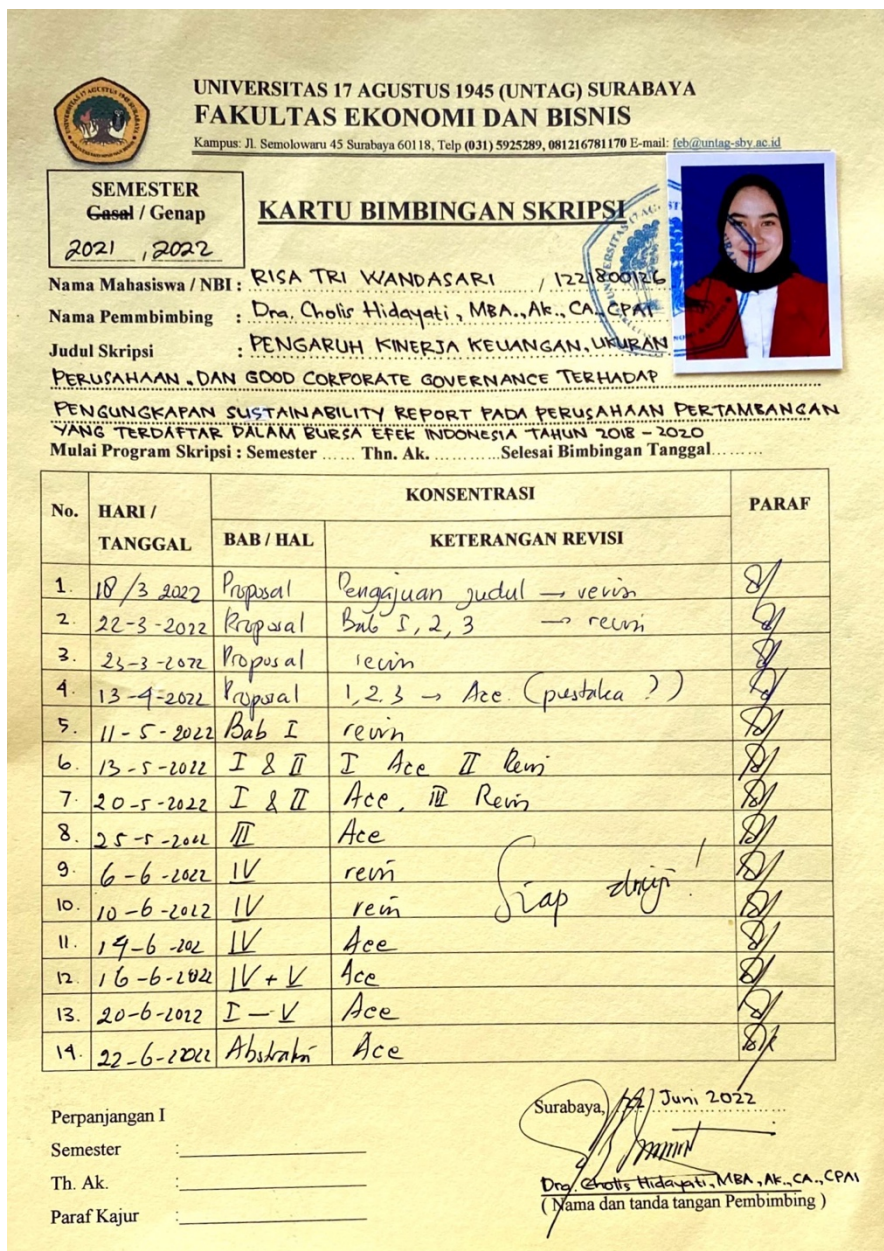 UNIVERSITAS 17 AGUSTUS 1945 (UNTAG) SURABAYA
FAKULTAS EKONOMI DAN BISNIS
Kampus: Jl. Semolowaru 45 Surabaya 60118, Telp (031) 5925289, 081216781170 E-mail: feb@untag-sby.ac.id
SEMESTER
Gasal / Genap
2021 , 2022
KARTU BIMBINGAN SKRIPSI
Nama Mahasiswa / NBI : RISA TRI WANDASARI / 1221800126
Nama Pemmbimbing : Dra. Cholis Hidayati, MBA., Ak., CA., CPAI
Judul Skripsi : PENGARUH KINERJA KEUANGAN, UKURAN
PERUSAHAAN, DAN GOOD CORPORATE GOVERNANCE TERHADAP
PENGUNGKAPAN SUSTAINABILITY REPORT PADA PERUSAHAAN PERTAMBANGAN
YANG TERDAFTAR DALAM BURSA EFEK INDONESIA TAHUN 2018 - 2020
Mulai Program Skripsi : Semester ...... Thn. Ak. ............Selesai Bimbingan Tanggal.........
No. HARI / TANGGAL KONSENTRASI PARAF
BAB / HAL KETERANGAN REVISI
1. 18/3 2022 Proposal Pengajuan judul → revisi
2. 22-3-2022 Proposal Bab I, 2, 3 → revisi
3. 23-3-2022 Proposal revisi
4. 13-4-2022 Proposal 1, 2, 3 → Acc. (pustaka ?)
5. 11-5-2022 Bab I revisi
6. 13-5-2022 I & II I Acc II Revisi
7. 20-5-2022 I & II Acc, III Revisi
8. 25-5-2022 III Acc
9. 6-6-2022 IV revisi
Siap diuji !
10. 10-6-2022 IV revisi
11. 14-6-202 IV Acc
12. 16-6-2022 IV + V Acc
13. 20-6-2022 I - V Acc
14. 22-6-2022 Abstraksi Acc
Perpanjangan I
Semester :
Th. Ak. :
Paraf Kajur :
Surabaya, 22 Juni 2022
Dra. Cholis Hidayati, MBA, AK., CA., CPAI
( Nama dan tanda tangan Pembimbing )